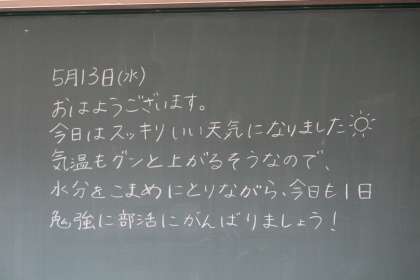 5月13日(水)
おはようございます。
今日はスッキリいい天気になりました☀
気温もグンと上がるそうなので、
水分をこまめにとりながら、今日も1日
勉強に部活にがんばりましょう!